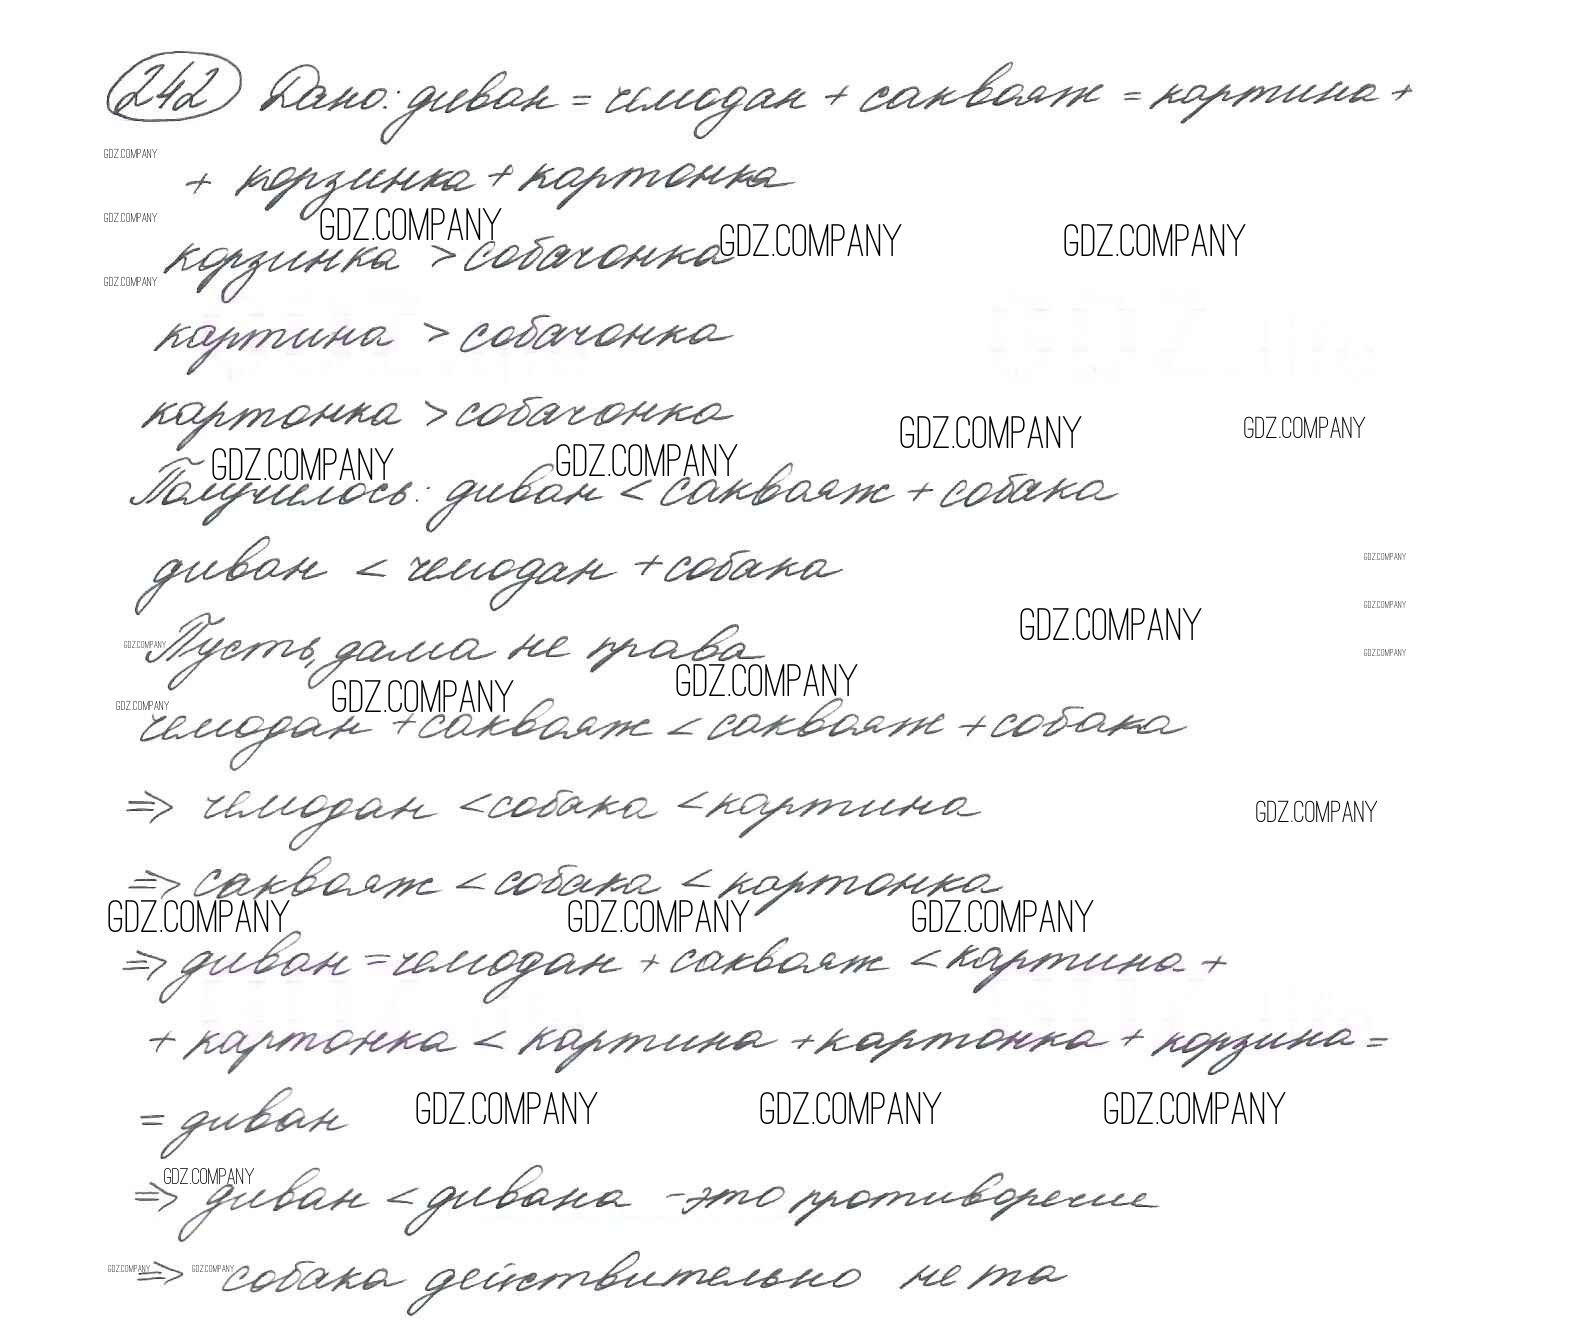 242 Дано: диван = чемодан + саквояж = картина +
GDZ.COMPANY
+ корзинка + картонка
GDZ.COMPANY GDZ.COMPANY GDZ.COMPANY GDZ.COMPANY
корзинка > собачонка
GDZ.COMPANY
картина > собачонка
картонка > собачонка
GDZ.COMPANY GDZ.COMPANY
GDZ.COMPANY GDZ.COMPANY
Получилось: диван < саквояж + собака
диван < чемодан + собака
GDZ.COMPANY
GDZ.COMPANY
GDZ.COMPANY
GDZ.COMPANY Пусть, дама не права
GDZ.COMPANY
GDZ.COMPANY GDZ.COMPANY
GDZ.COMPANY
чемодан + саквояж < саквояж + собака
=> чемодан < собака < картина
GDZ.COMPANY
=> саквояж < собака < картонка
GDZ.COMPANY GDZ.COMPANY GDZ.COMPANY
=> диван = чемодан + саквояж < картина +
+ картонка < картина + картонка + корзина =
= диван
GDZ.COMPANY GDZ.COMPANY GDZ.COMPANY
GDZ.COMPANY
=> диван < дивана - это противоречие
GDZ.COMPANY GDZ.COMPANY
=> собака действительно не та